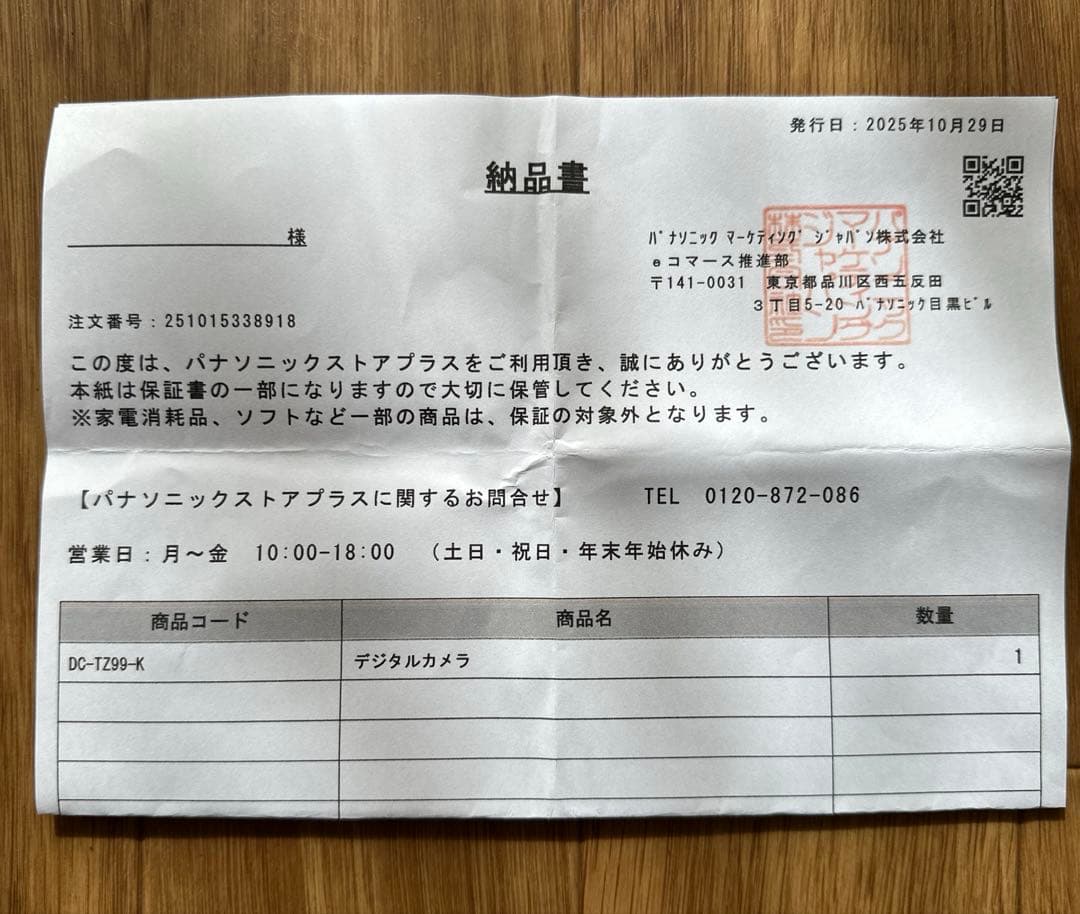 発行日：2025年10月29日
納品書
様
ﾊﾟﾅｿﾆｯｸ ﾏｰｹﾃｨﾝｸﾞ ｼﾞｬﾊﾟﾝ株式会社
eコマース推進部
〒141-0031 東京都品川区西五反田
３丁目5-20 ﾊﾟﾅｿﾆｯｸ目黒ﾋﾞﾙ
注文番号：251015338918
この度は、パナソニックストアプラスをご利用頂き、誠にありがとうございます。
本紙は保証書の一部になりますので大切に保管してください。
※家電消耗品、ソフトなど一部の商品は、保証の対象外となります。
【パナソニックストアプラスに関するお問合せ】 TEL 0120-872-086
営業日：月～金 10:00-18:00 （土日・祝日・年末年始休み）
商品コード 商品名 数量
DC-TZ99-K デジタルカメラ 1